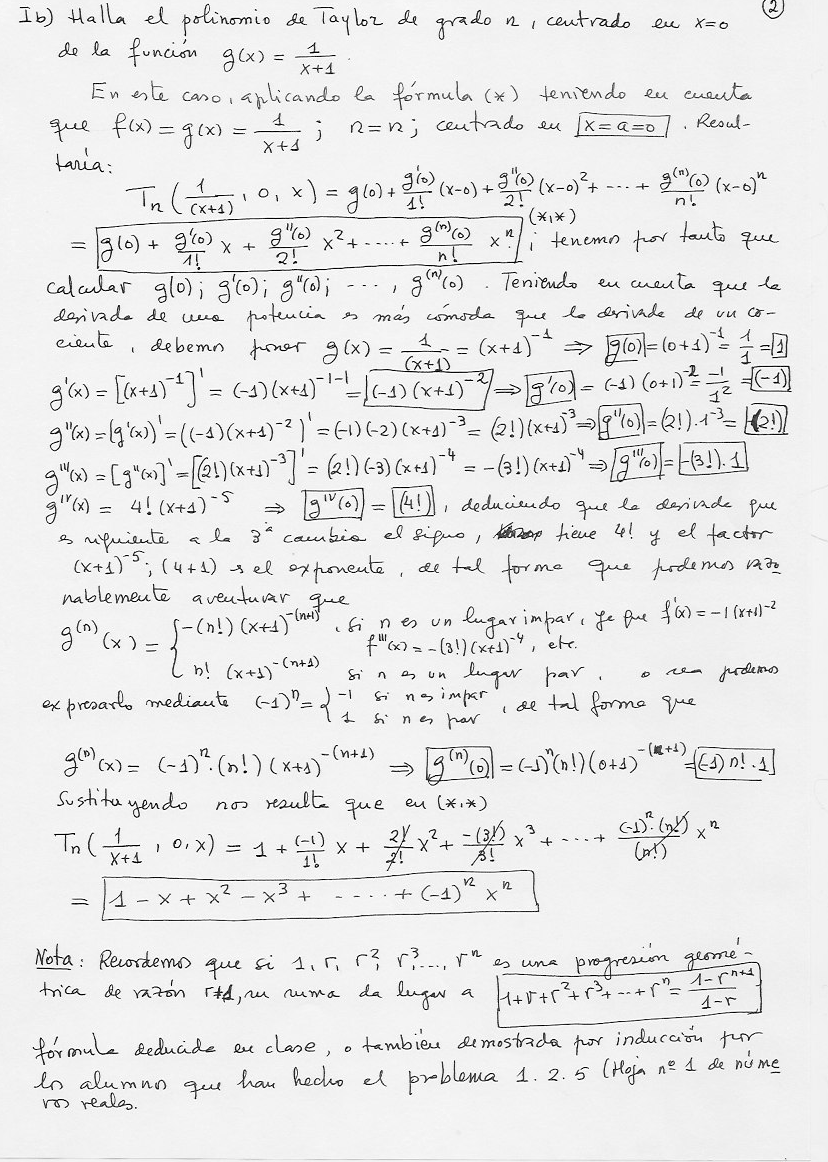 ②
Ib) Halla el polinomio de Taylor de grado n, centrado en x=0
de la función g(x) = 1/(x+1).
En este caso, aplicando la fórmula (*) teniendo en cuenta
que f(x) = g(x) = 1/(x+1); n=n; centrado en x=a=0. Resul-
taría:
Tn(1/(x+1), 0, x) = g(0) + g'(0)/1! (x-0) + g''(0)/2! (x-0)² + --- + g⁽ⁿ⁾(0)/n! (x-0)ⁿ
= g(0) + g'(0)/1! x + g''(0)/2! x² + ---- + g⁽ⁿ⁾(0)/n! xⁿ. (*,*) ; tenemos por tanto que
calcular g(0); g'(0); g''(0); ---, g⁽ⁿ⁾(0). Teniendo en cuenta que la
derivada de una potencia es más cómoda que la derivada de un co-
ciente, debemos poner g(x) = 1/(x+1) = (x+1)⁻¹ ⇒ g(0) = (0+1)⁻¹ = 1/1 = 1
g'(x) = [(x+1)⁻¹]' = (-1)(x+1)⁻¹⁻¹ = (-1)(x+1)⁻² ⇒ g'(0) = (-1)(0+1)⁻² = -1/1² = (-1)
g''(x) = (g'(x))' = ((-1)(x+1)⁻²)' = (-1)(-2)(x+1)⁻³ = (2!)(x+1)⁻³ ⇒ g''(0) = (2!)·1⁻³ = (2!)
g'''(x) = [g''(x)]' = [(2!)(x+1)⁻³]' = (2!)(-3)(x+1)⁻⁴ = -(3!)(x+1)⁻⁴ ⇒ g'''(0) = -(3!)·1
gᴵⱽ(x) = 4! (x+1)⁻⁵ ⇒ gᴵⱽ(0) = (4!), deduciendo que la derivada que
es siguiente a la 3ª cambia el signo, tiene 4! y el factor
(x+1)⁻⁵; (4+1) es el exponente, de tal forma que podemos razo
nablemente aventurar que
g⁽ⁿ⁾(x) = { -(n!)(x+1)^-(n+1), si n es un lugar impar, ya que f'(x) = -1(x+1)⁻²
f'''(x) = -(3!)(x+1)⁻⁴, etc.
n! (x+1)^-(n+1) si n es un lugar par, o sea podemos
expresarlo mediante (-1)ⁿ = { -1 si n es impar
1 si n es par , de tal forma que
g⁽ⁿ⁾(x) = (-1)ⁿ·(n!)(x+1)^-(n+1) ⇒ g⁽ⁿ⁾(0) = (-1)ⁿ(n!)(0+1)^-(n+1) = (-1)ⁿ n!·1
Sustituyendo nos resulta que en (*,*)
Tn(1/(x+1), 0, x) = 1 + (-1)/1! x + 2!/2! x² + -(3!)/3! x³ + --- + (-1)ⁿ·(n!)/(n!) xⁿ
= 1 - x + x² - x³ + ---- + (-1)ⁿ xⁿ
Nota: Recordemos que si 1, r, r², r³, ..., rⁿ es una progresión geomé-
trica de razón r≠1, su suma da lugar a 1+r+r²+r³+---+rⁿ = (1-rⁿ⁺¹)/(1-r)
fórmula deducida en clase, o también demostrada por inducción por
los alumnos que han hecho el problema 1.2.5 (Hoja nº 1 de núme
ros reales.